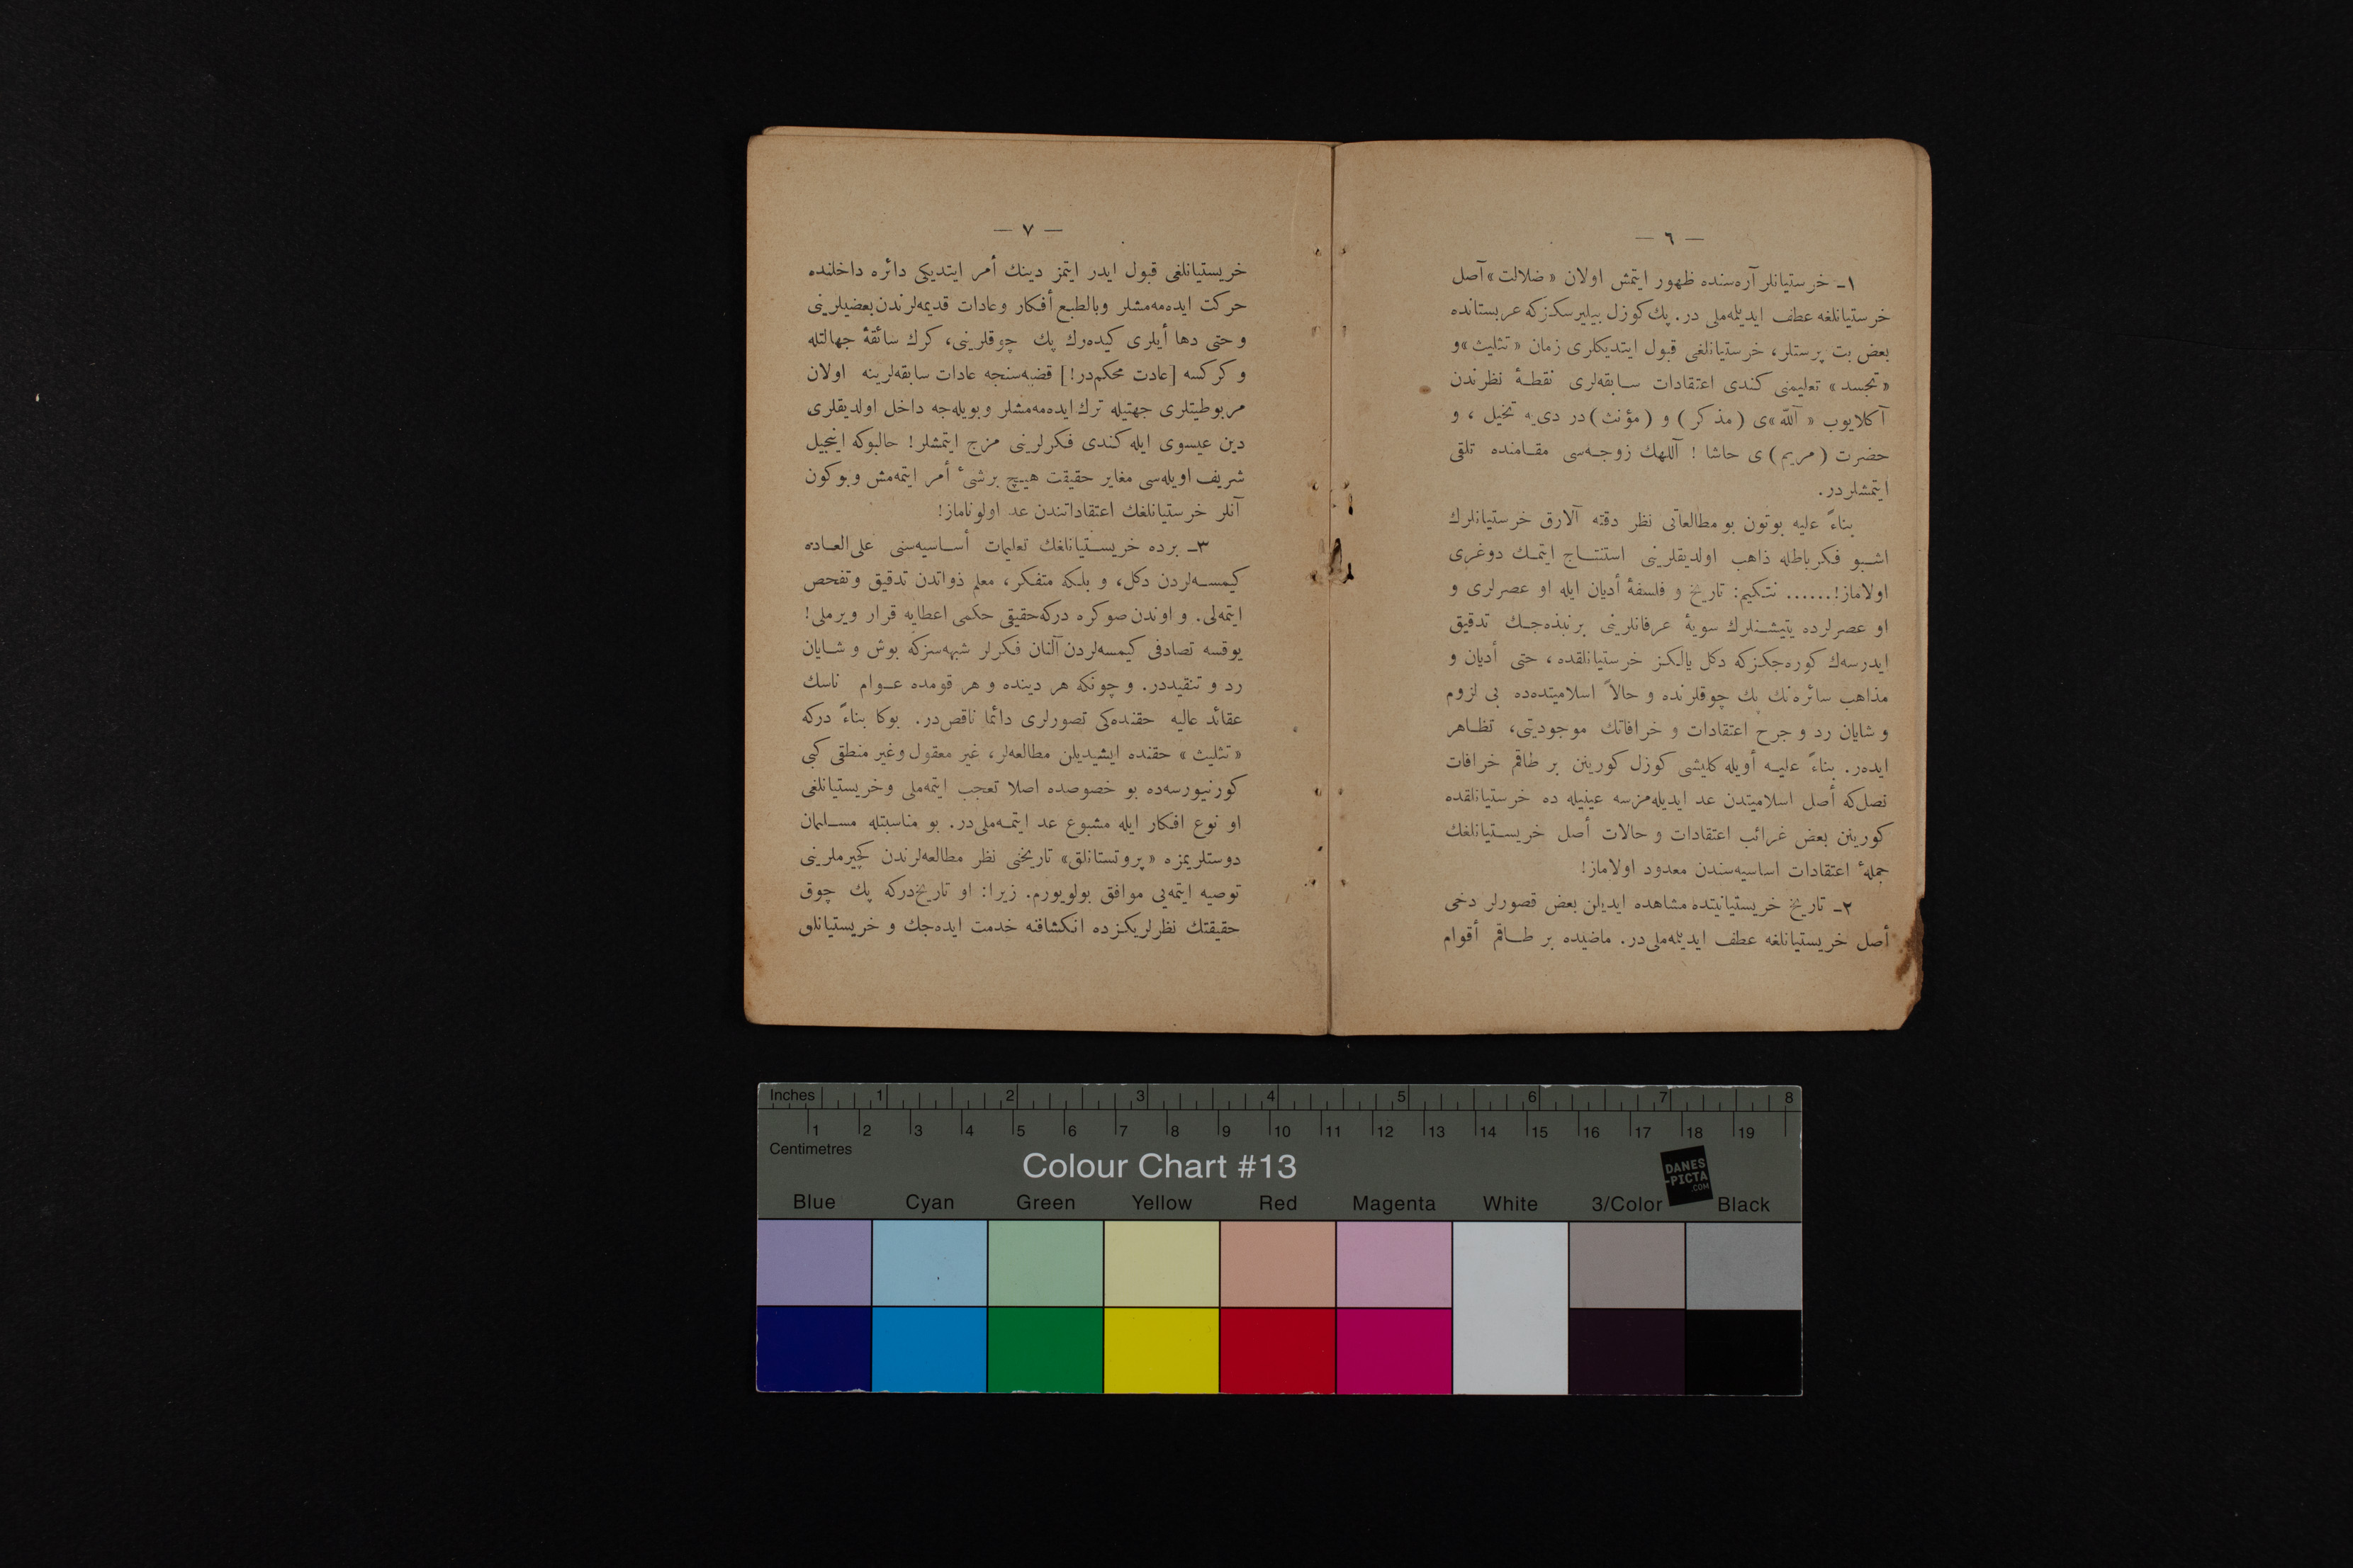 — ٦ —
١ـ خرستیانلر آره‌سنده ظهور ایتمش اولان « ضلالت » آصل
خرستیانلغه عطف ایدیلمه‌ملی در. پك كوزل بیلیرسكزكه عربستانده
بعض بت پرستلر، خرستیانلغی قبول ایتدیكلری زمان « تثلیث » و
« تجسد » تعلیمنی كندی اعتقادات سابقه‌لری نقطهٔ نظرندن
آكلایوب « آللّه »ی ( مذكر ) و ( مؤنث ) در دیه تخیل ، و
حضرت ( مریم ) ی حاشا ! آللهك زوجه‌سی مقامنده تلقی
ایتمشلردر.
بناءً علیه بوتون بو مطالعاتی نظر دقته آلارق خرستیانلرك
اشبو فكر باطله ذاهب اولدیقلرینی استنتاج ایتمك دوغری
اولاماز!...... نتكیم: تاریخ و فلسفهٔ أدیان ایله او عصرلری و
او عصرلرده یتیشنلرك سویهٔ عرفانلرینی برنبذه‌جك تدقیق
ایدرسه‌ك كوره‌جكزكه دكل یالكز خرستیانلقده ، حتی أدیان و
مذاهب سائره‌نك پك چوقلرنده و حالاً اسلامیتده‌ده بی لزوم
و شایان رد و جرح اعتقادات و خرافاتك موجودیتی، تظاهر
ایده‌ر. بناءً علیه أویله كلیشی كوزل كورینن بر طاقم خرافات
نصل‌كه أصل اسلامیتدن عد ایدیله‌مزسه عینیله ده خرستیانلقده
كورینن بعض غرائب اعتقادات و حالات أصل خریستیانلغك
جملهٔ اعتقادات اساسیه‌سندن معدود اولاماز!
٢ـ تاریخ خریستیانیتده مشاهده ایدیلن بعض قصورلر دخی
أصل خریستیانلغه عطف ایدیلمه‌ملی‌در. ماضیده بر طاقم أقوام
— ٧ —
خریستیانلغی قبول ایدر ایتمز دینك أمر ایتدیكی دائره داخلنده
حركت ایده‌مه‌مشلر وبالطبع أفكار وعادات قدیمه‌لرندن بعضیلرینی
و حتی دها أیلری كیده‌رك پك چوقلرینی، كرك سائقهٔ جهالتله
و كركسه [عادت محكم‌در!] قضیه‌سنجه عادات سابقه‌لرینه اولان
مربوطیتلری جهتیله ترك ایده‌مه‌مشلر وبویله‌جه داخل اولدیقلری
دین عیسوی ایله كندی فكرلرینی مزج ایتمشلر! حالبوكه اینجیل
شریف اویله‌سی مغایر حقیقت هیچ برشیٔ أمر ایتمه‌مش وبوكون
آنلر خرستیانلغك اعتقاداتندن عد اولوناماز!
٣ـ برده خریستیانلغك تعلیمات أساسیه‌سنی علی‌العاده
كیمسه‌لردن دكل، و بلكه متفكر، معلم ذواتدن تدقیق وتفحص
ایتمه‌لی. و اوندن صوكره دركه‌حقیقی حكمی اعطایه قرار ویرملی!
یوقسه تصادفی كیمسه‌لردن آلنان فكرلر شبهه‌سزكه بوش و شایان
رد و تنقیددر. و چونكه هر دینده و هر قومده عوام ناسك
عقائد عالیه حقنده‌كی تصورلری دائما ناقص‌در. بوكا بناءً دركه
« تثلیث » حقنده ایشیدیلن مطالعه‌لر، غیر معقول وغیر منطقی كبی
كورنیورسه‌ده بو خصوصده اصلا تعجب ایتمه‌ملی وخریستیانلغی
او نوع افكار ایله مشبوع عد ایتمه‌ملی‌در. بو مناسبتله مسلمان
دوستلریمزه « پروتستانلق» تاریخنی نظر مطالعه‌لرندن كچیرملرینی
توصیه ایتمه‌یی موافق بولویورم. زیرا: او تاریخ‌دركه پك چوق
حقیقتك نظرلریكزده انكشافنه خدمت ایده‌جك و خریستیانلق
Inches 1 2 3 4 5 6 7 8
1 2 3 4 5 6 7 8 9 10 11 12 13 14 15 16 17 18 19
Centimetres
Colour Chart #13
DANES
-PICTA
.COM
Blue Cyan Green Yellow Red Magenta White 3/Color Black